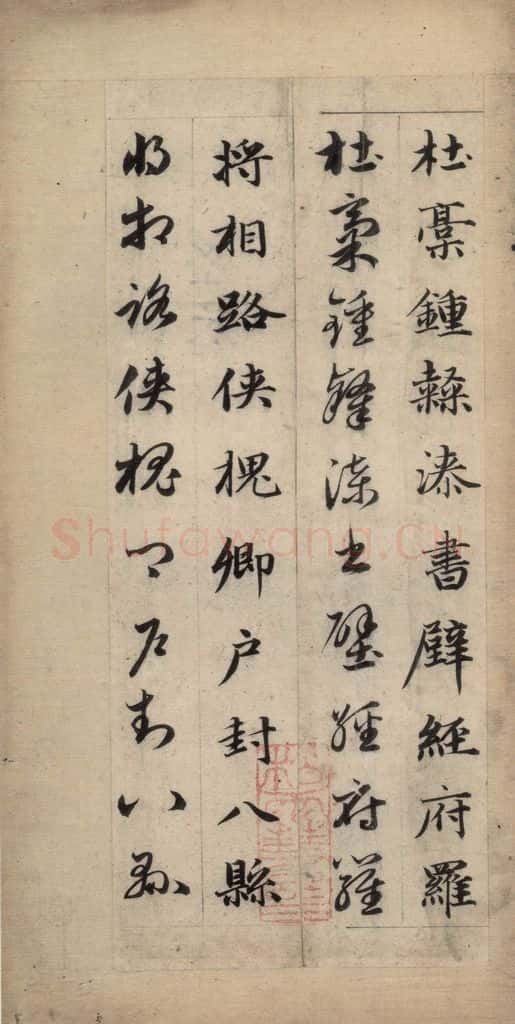 杜槀鍾隸漆書壁經府羅
杜槀鍾隸漆書壁經府羅
將相路俠槐卿户封八縣
將相路俠槐卿户封八縣
Shufawang.cn